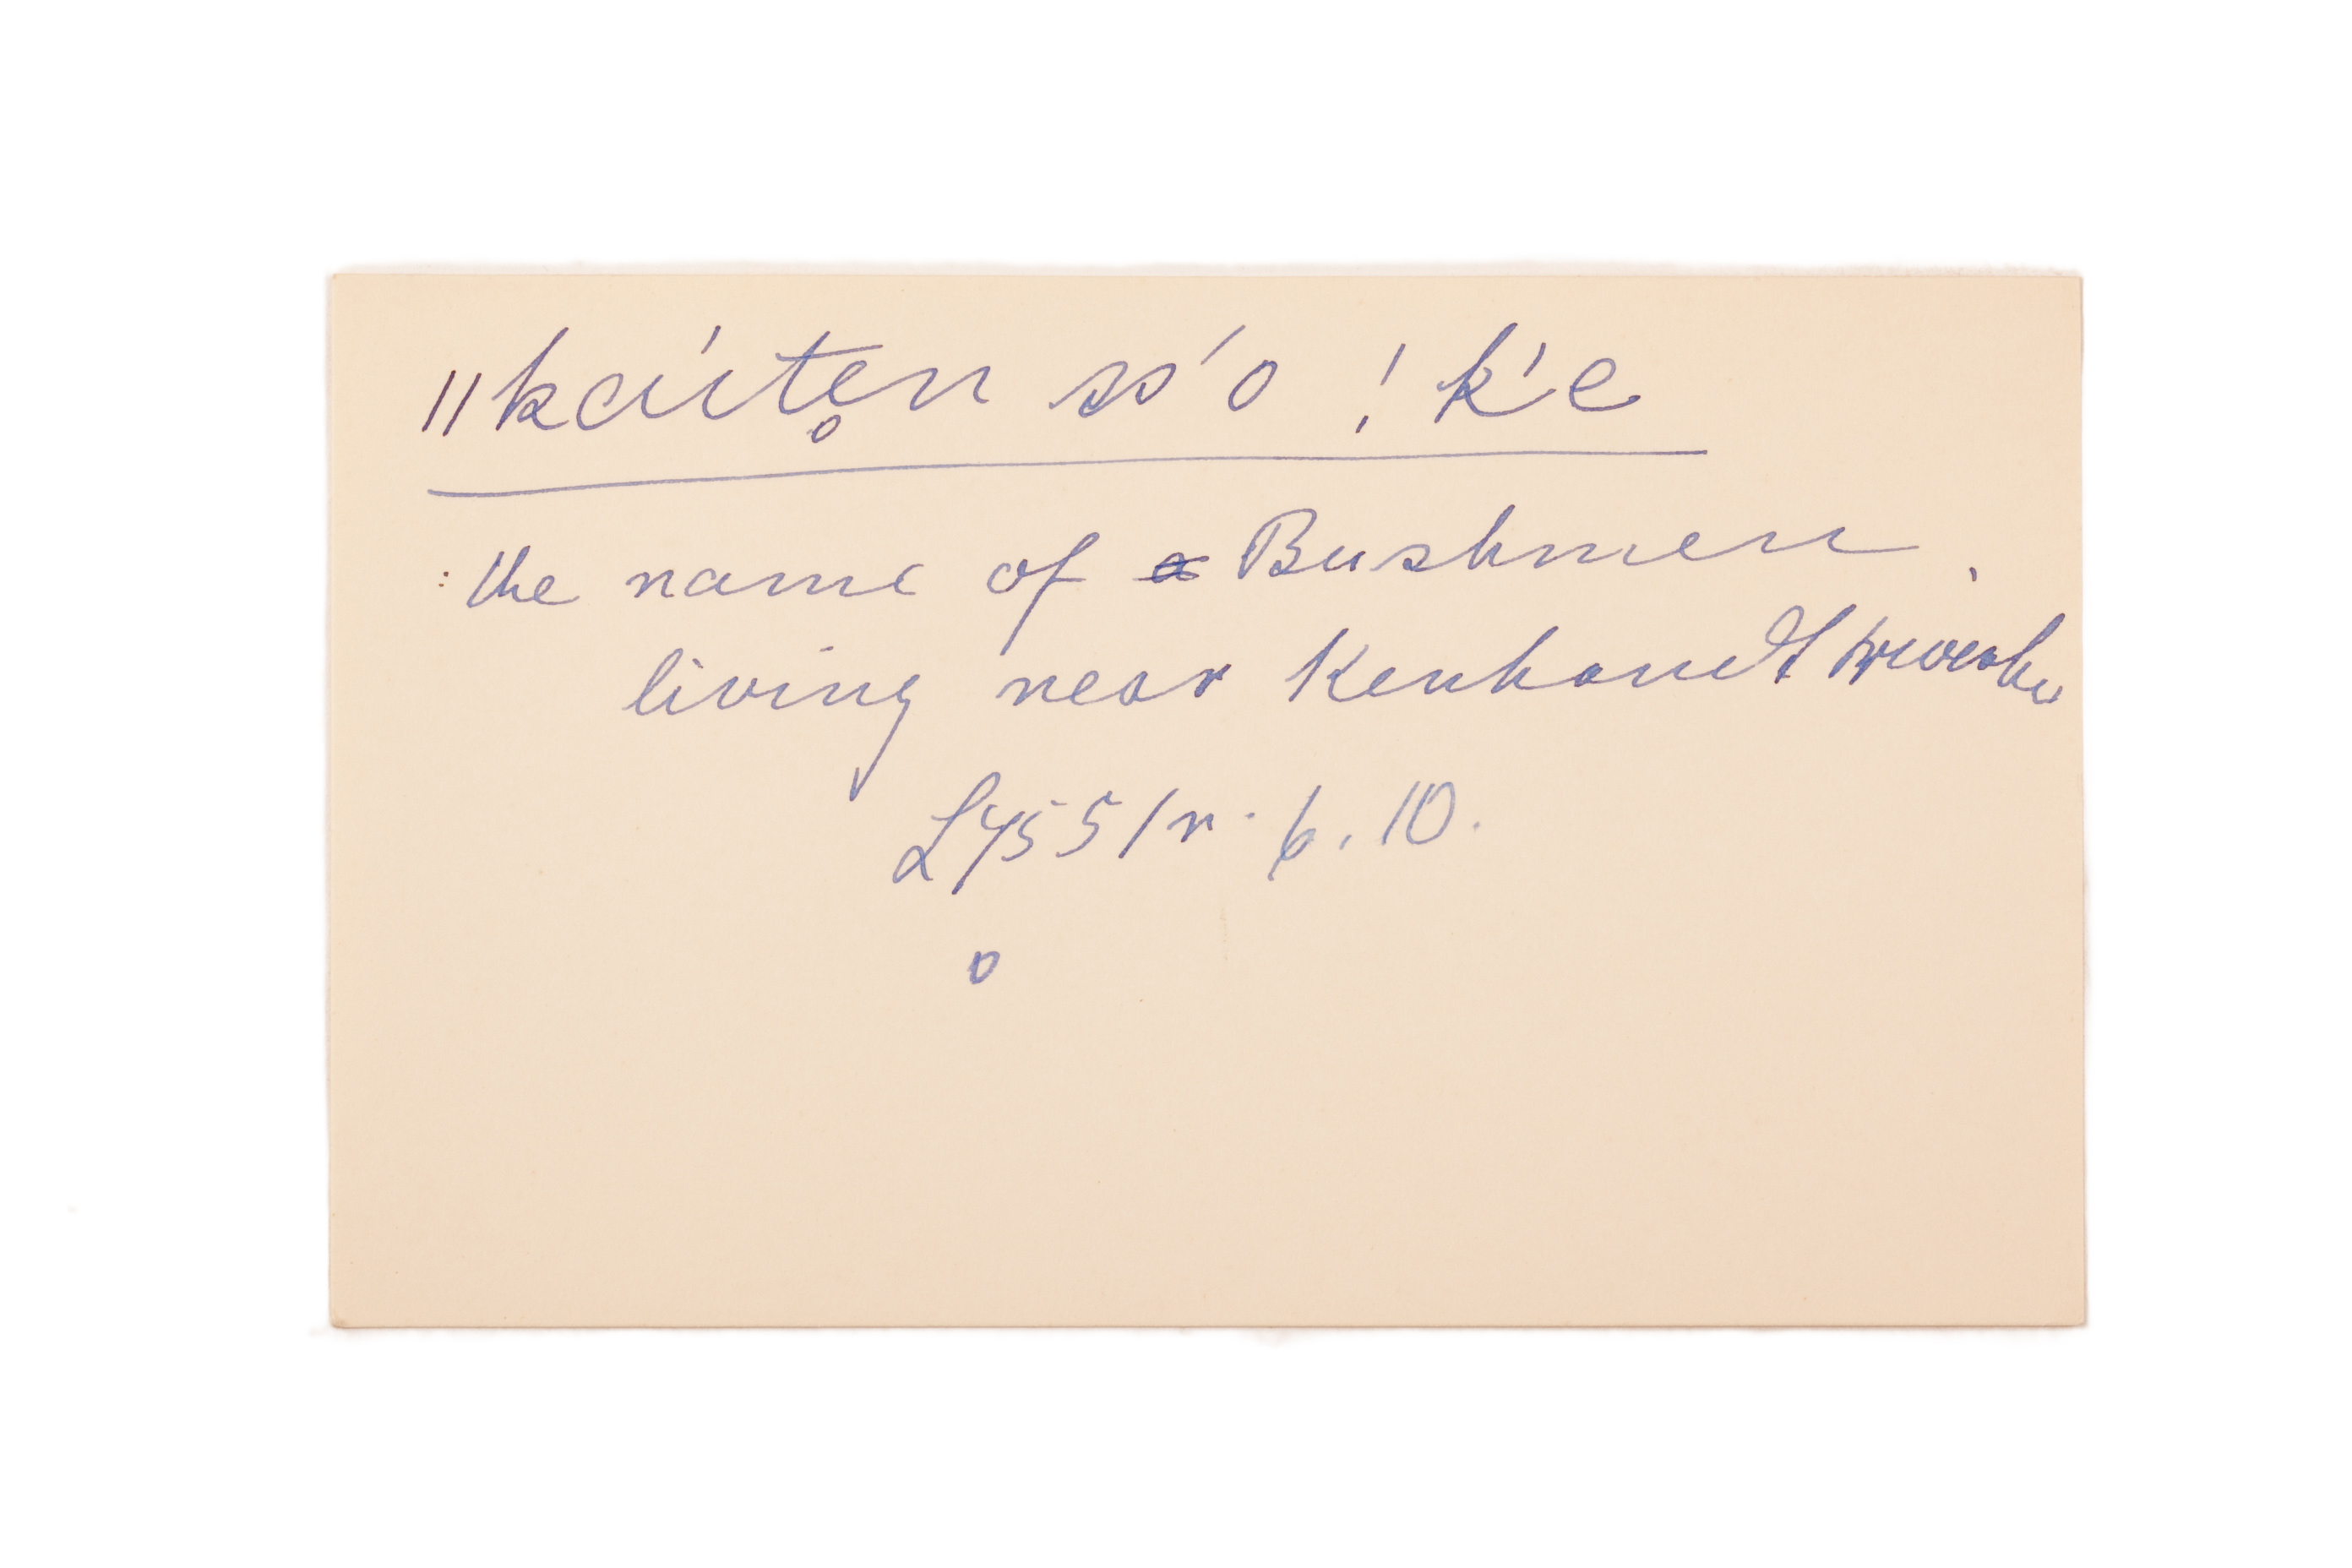 ǁkáitẹn ss'o ! k'e
: the name of a Bushmen
living near Kenhardt
L 455 1 r. 6. 10.
o